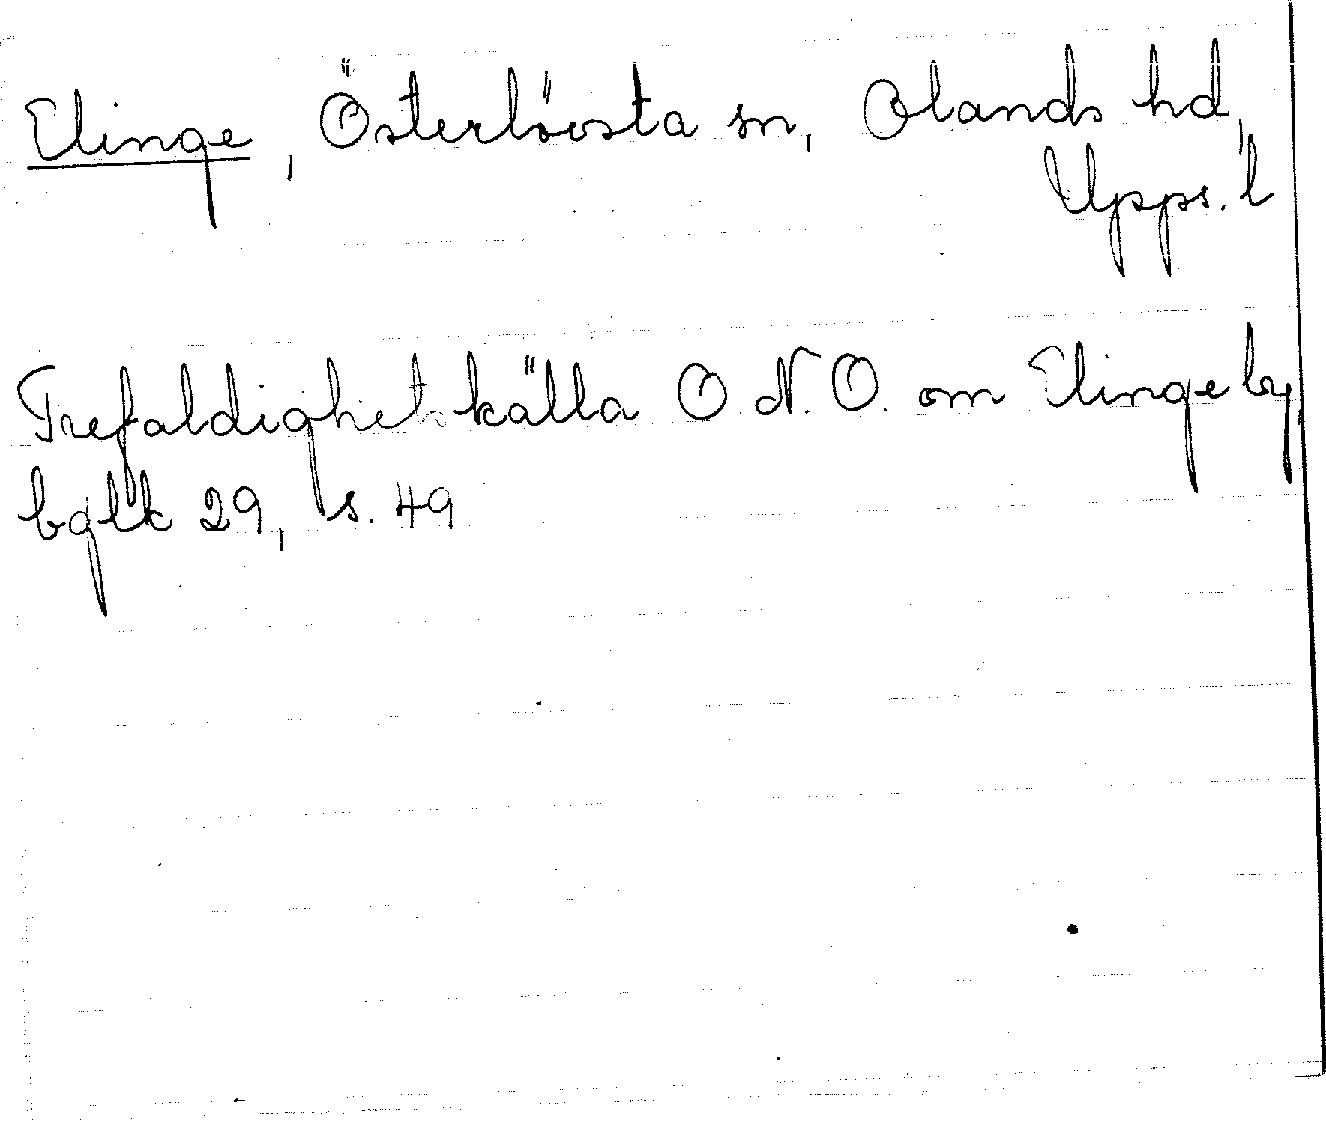 Elinge, Österlövsta sn, Olands hd,
Upps. l
Trefaldighetskälla O.N.O. om Elinge by,
bglk 29, s. 49